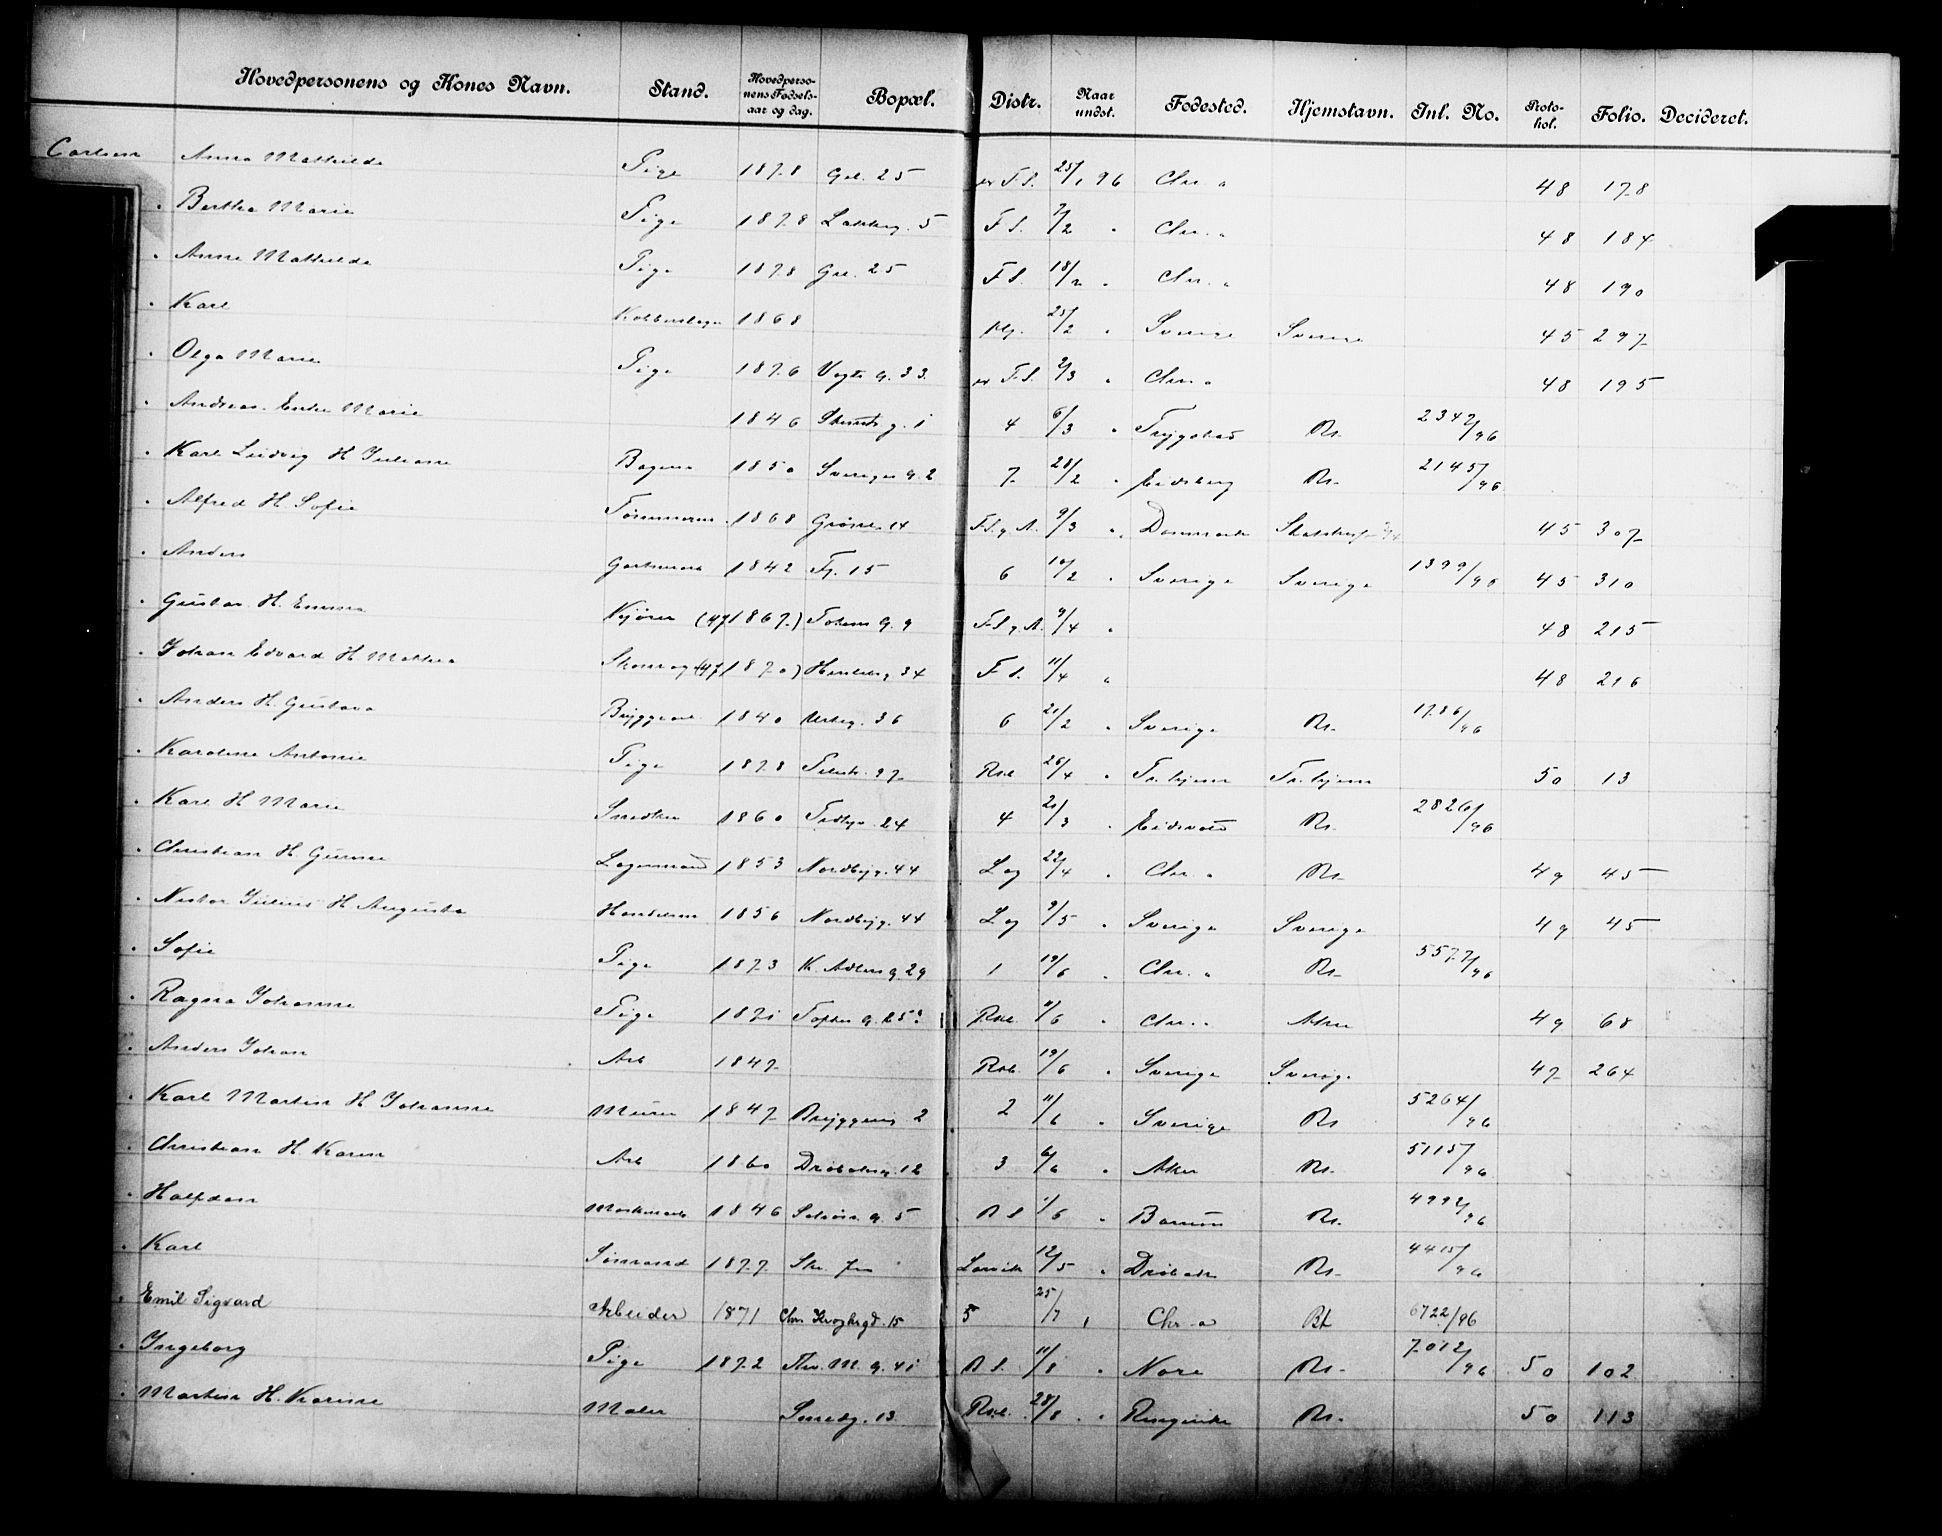 Hovedpersonens og Kones Navn. Stand. Hovedpersonens Fødselsaar og dag. Bopæl. Distr. Naar undst. Fødested. Hjemstavn. Inl. No. Protokol. Folio. Decideret.
Carlsen Anna Mathilde Pige 1878 Gul. 25 F.S. 25/1 96 Chr. a 48 178
" Bertha Marie Pige 1878 5 F.S. 7/2 " Chr. a 48 184
" Anna Mathilde Pige 1878 25 F.S. 18/2 " Chr. a 48 190
" Karl 1868 25/2 " Sverige Sverige 45 297
" Olga Marie Pige 1876 Vogts g. 33 F.S. 9/3 " Chr. a 48 195
" Andreas. Enke Marie 1846 g. 1 4 6/3 " Trygstad Rs. 2342/96
" Karl Ludvig H Juliane Bager 1850 Sveriges g. 2 7 28/2 " Eidsberg Rs. 2145/96
" Alfred H. Sofie Tømmerm. 1868 Grønl. 14 F.S. g A. 9/3 " Danmark 45 307
" Anders Gartner 1842 Tj. 15 6 10/2 " Sverige Sverige 1399/96 45 310
" Gustav. H. Emma Kjører (47 1867) Totens g. 9 F.S g A. 9/4 " 48 215
" Johan Edvard H Mathea Skomag (47 1870) 34 F S. 11/4 " 48 216
" Anders H. Gustava Bryggear. 1840 Urteg. 36 6 21/2 " Sverige Rs. 1786/96
" Karoline Antonie Pige 1878 97 Rod 26/4 " Tr.hjem Tr.hjem 50 13
" Karl H Marie Snedker 1860 Tidtgr. 24 4 21/3 " Eidsvold Rs. 2826/96
" Christian H. Gunne Lagermand 1853 Nordbyg. 44 Lag 22/4 " Chr. a Rs. 49 45
" Nestor Julius H Augusta Handelsm 1856 Nordbyg. 44 Lag 9/5 " Sverige Sverige 49 45
" Sofie Pige 1873 K. Adlers g. 29 1 19/6 " Chr. a Rs. 5577/96
" Ragna Johanne Pige 1871 Toftes g. 25 Rod. 11/6 " Chr. a Aker 49 68
" Anders Johan Arb 1847 Rod. 19/6 " Sverige Sverige 47 264
" Karl Martin H Johanne Murer 1847 Bryggerig 2 2 11/6 " Sverige Rs 5264/96
" Christian H Karen Arb 1860 Drøbaksg. 12 3 6/6 " Aker Rs. 5115/96
" Halfdan Maskinarb 1846 g. 5 R S 1/6 " Bærum Rs. 4992/96
" Karl Sømand 1877 Larvik 12/5 " Drøbak Rs. 4415/96
" Emil Sigvard Arbeider 1871 Chr. Kroghsgd. 15 5 25/7 " Chr. a Rs 6722/96
" Ingeborg Pige 1872 Thv. M. g. 41 R S. 11/8 " Nore Rs. 7012/96 50 102
" Martin H. Karine Maler Smedg. 13. Rod. 28/8 " Ringerike Rs. 50 113